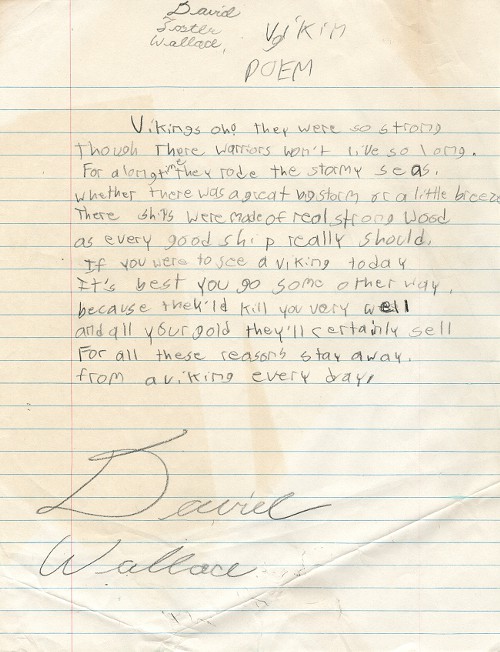 David
Foster
Wallace,
Viking
POEM
Vikings oh! They were so strong
Though there warriors won't live so long.
For a long time they rode the stormy seas.
Whether there was a great big storm or a little breeze
There ships were made of real strong wood
as every good ship really should.
If you were to see a viking today
It's best you go some other way.
because they'ld kill you very well
and all your gold they'll certainly sell
For all these reasons stay away.
from a viking every day.
David
Wallace